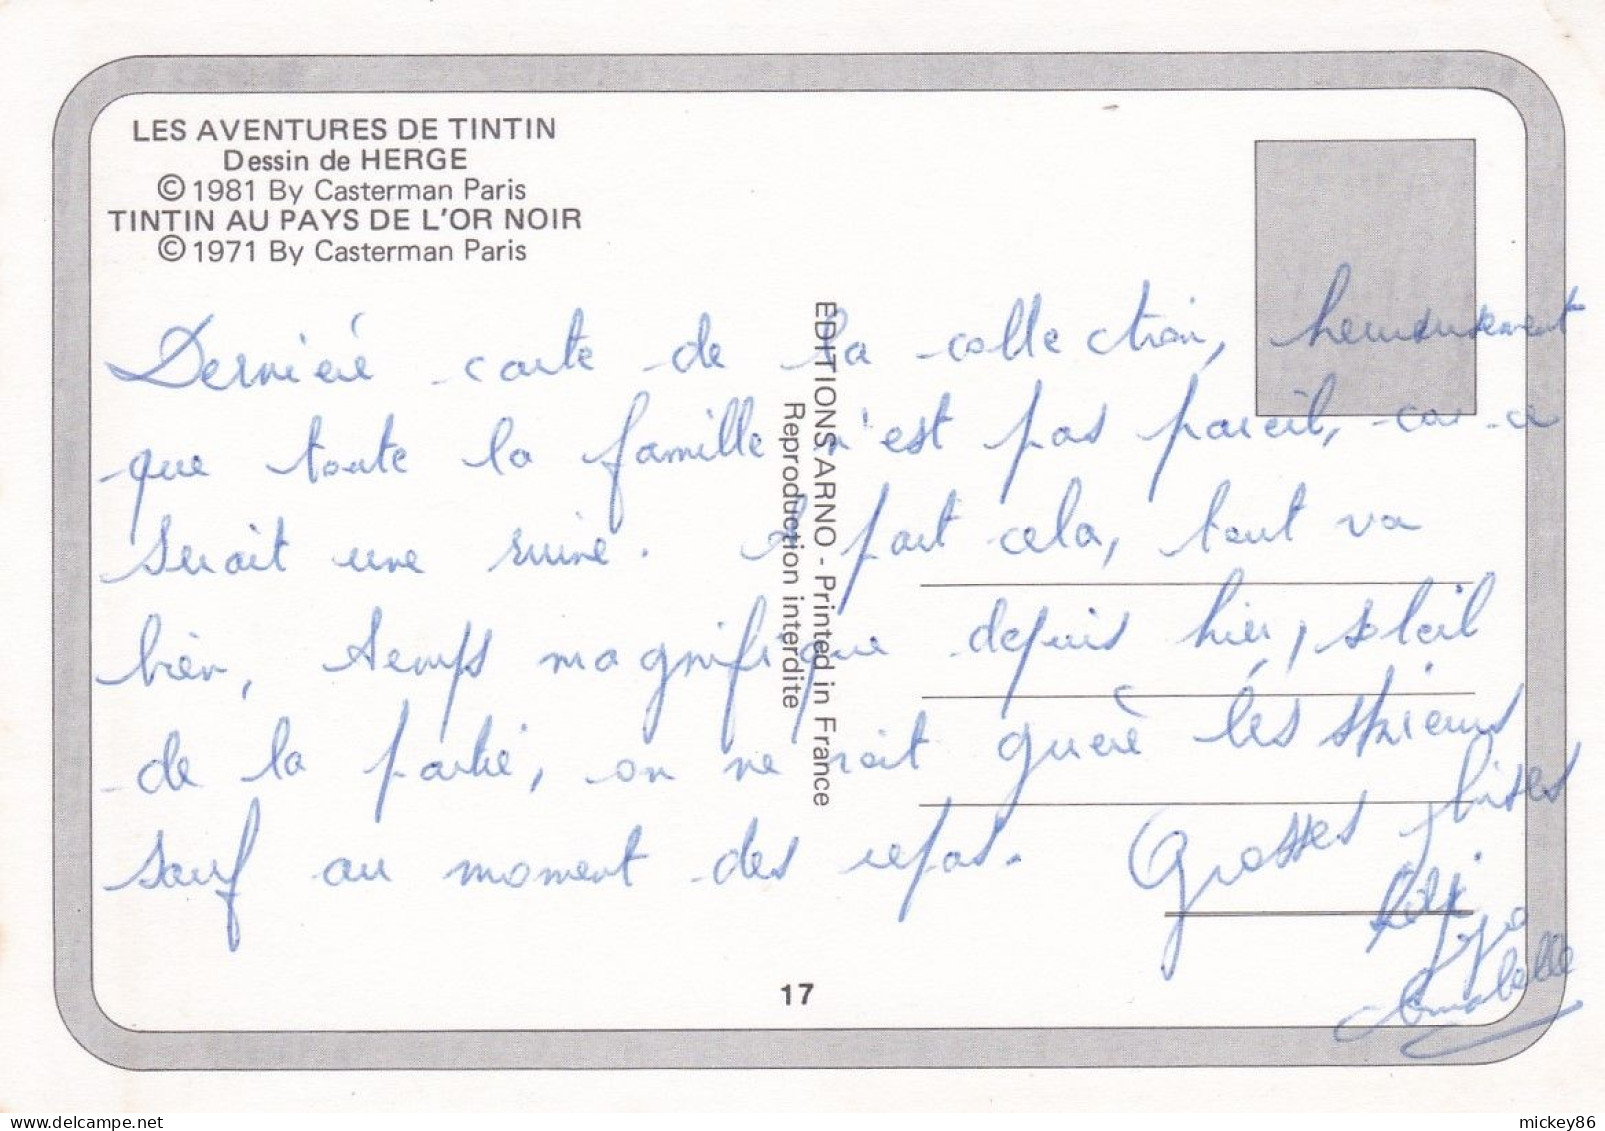 LES AVENTURES DE TINTIN
Dessin de HERGE
© 1981 By Casterman Paris
TINTIN AU PAYS DE L'OR NOIR
© 1971 By Casterman Paris
Dernière carte de la collection, heureusement
que toute la famille n'est pas pareil, car ce
serait une ruine. A part cela, tout va
bien, temps magnifique depuis hier, soleil
de la partie, on ne voit guère les
sauf au moment des repas. Grosses bises
Annabelle
EDITIONS ARNO - Printed in France
Reproduction interdite
17
mickey86